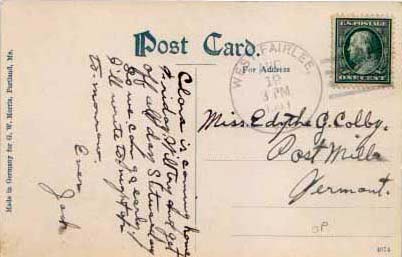 Post Card.
For Address
WEST FAIRLEE,
19
4 PM
U.S. POSTAGE
ONE CENT
Clara is coming home
Friday. Will try and get
off all day Saturday
So we can go early,
I'll write to-night or
to-morrow.
Ever
Jack.
Miss. Edythe G. Colby.
Post Mills
Vermont.
Made in Germany for G. W. Morris, Portland, Me.